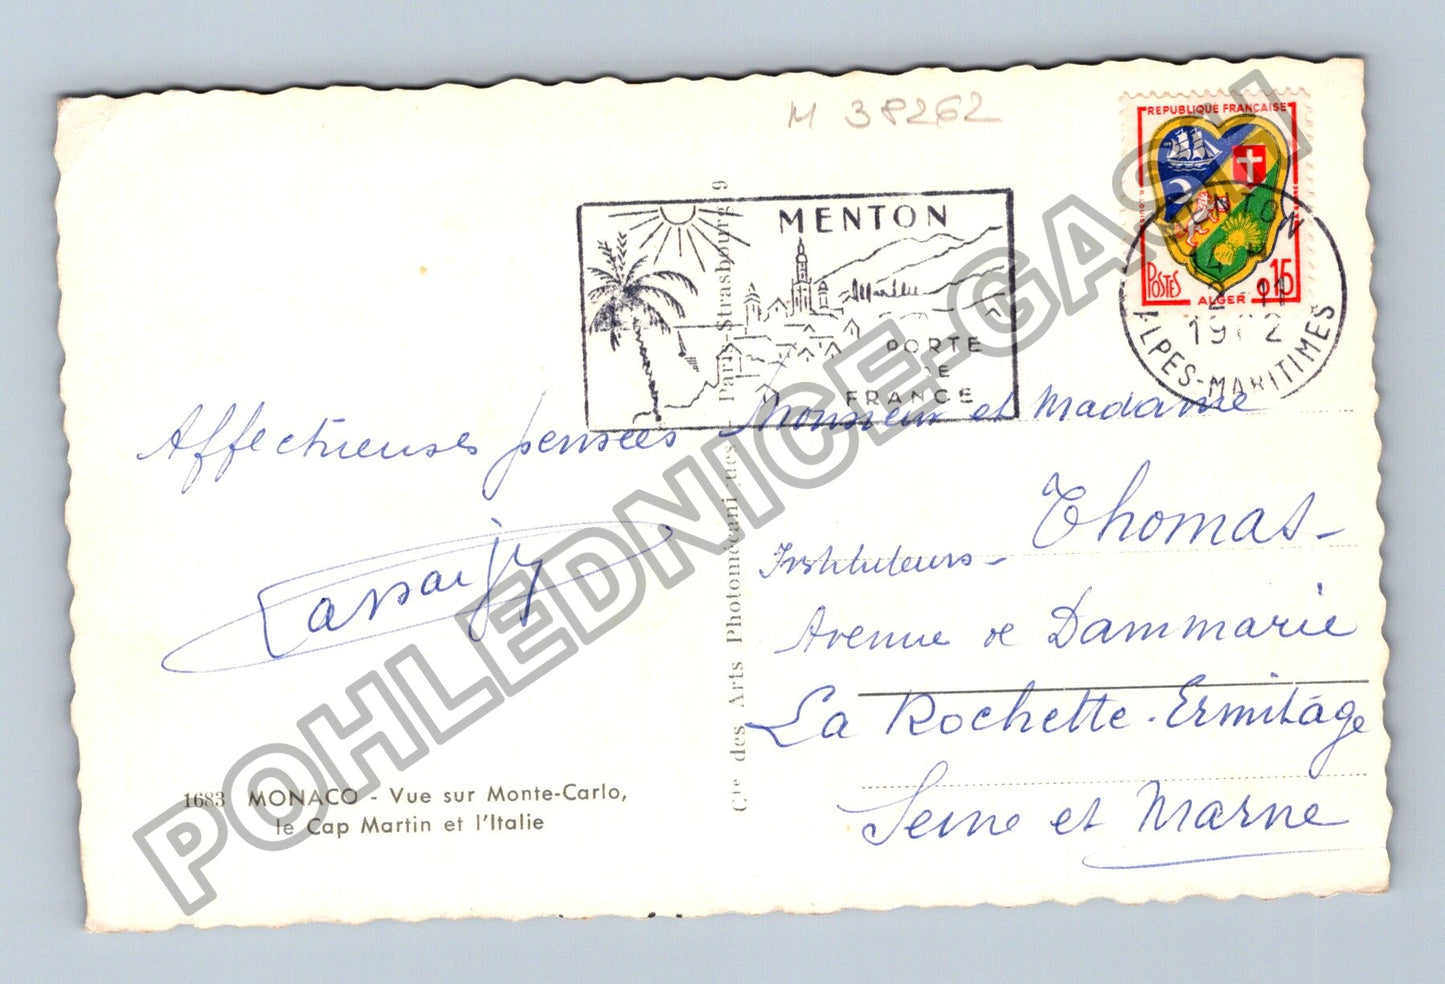 M 38262
REPUBLIQUE FRANÇAISE
POSTES
0,15
ALGER
MENTON
PORTE
DE
FRANCE
MENTON
2-11
ALPES-MARITIMES
Affectueuses pensées
Monsieur et Madame
Thomas-
Instituteurs-
Avenue de Dammarie
La Rochette-Ermitage
Seine et Marne
1683 MONACO - Vue sur Monte-Carlo,
le Cap Martin et l'Italie
Cie des Arts Photomécaniques - Paris-Strasbourg 9
POHLEDNICE-GASCH